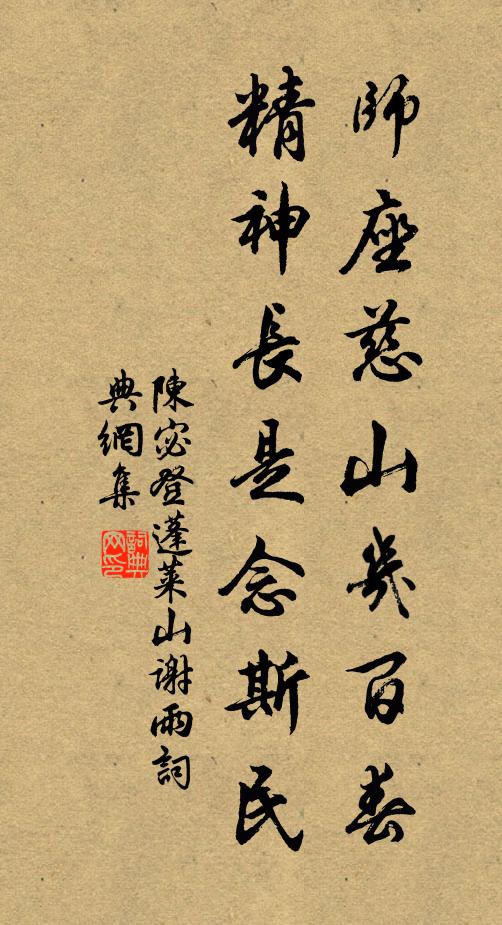 師座慈山幾百春
精神長是念斯民
陳宓登蓬萊山謝雨詞
典網集
詞典网印